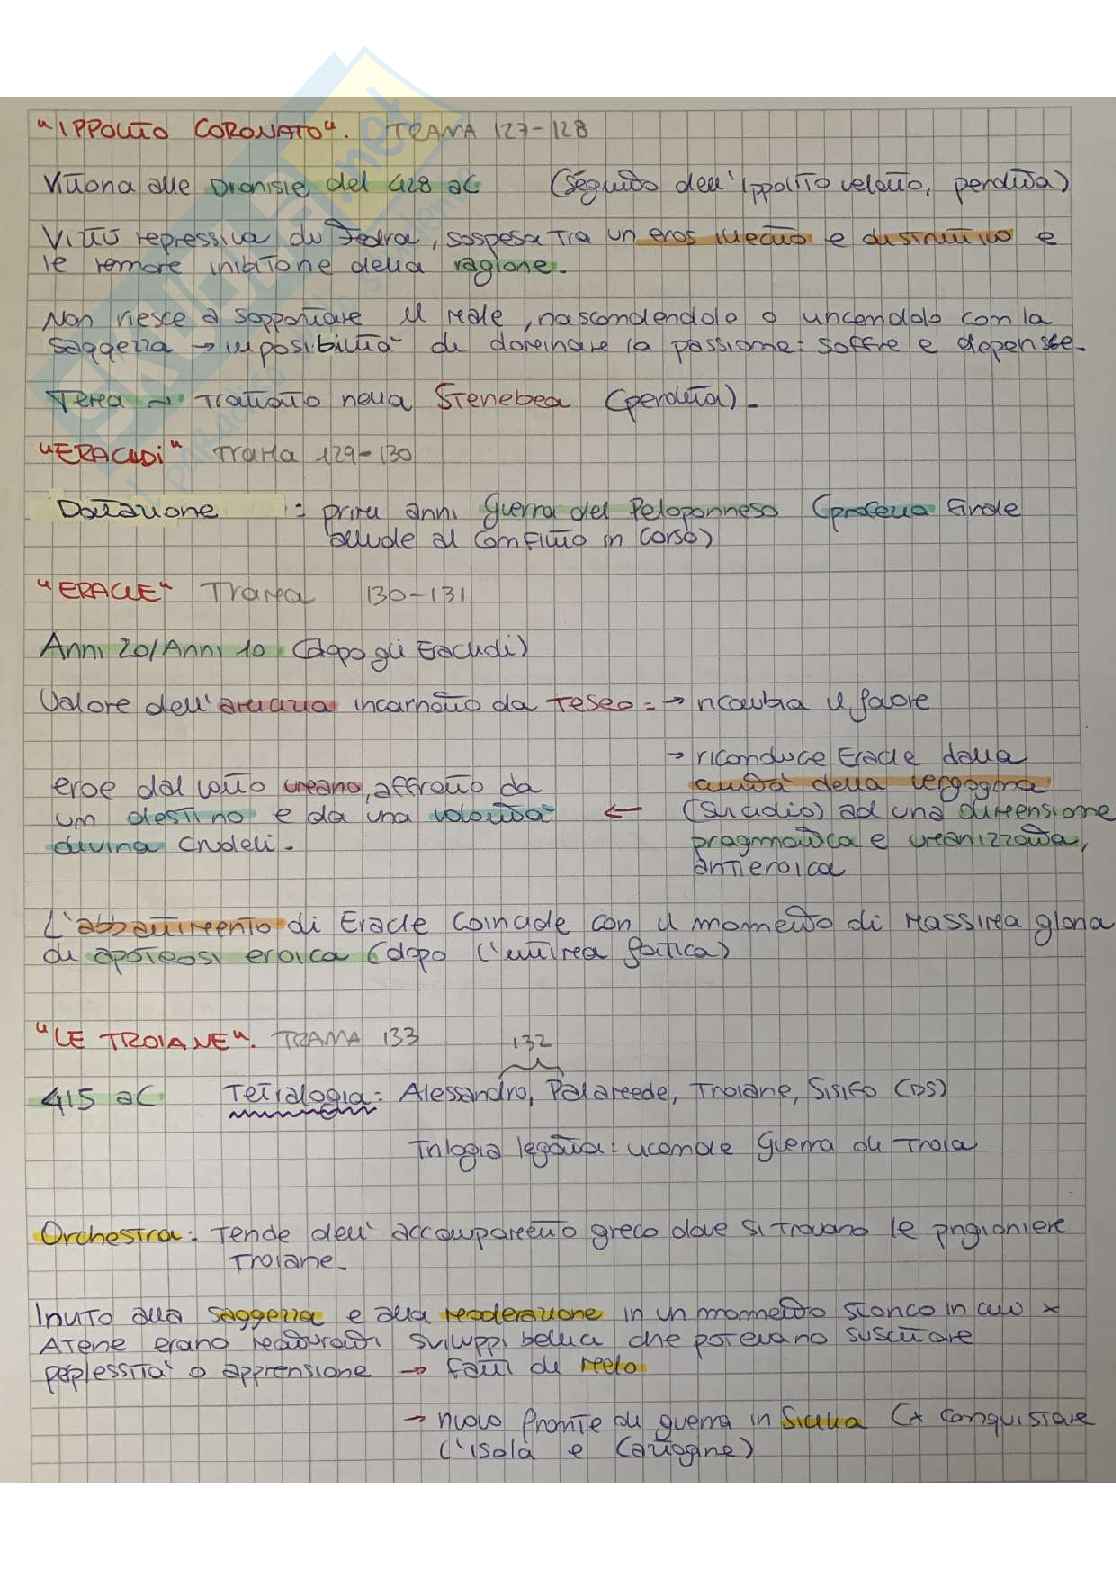 "IPPOLITO CORONATO". TRAMA 127-128
Vittoria alle Dionisie del 428 aC (seguito dell'Ippolito velato, perduta)
Virtù repressiva di Fedra, sospesa tra un eros illecito e distruttivo e
le remore inibitorie della ragione.
Non riesce a sopportare il male, nascondendolo o vincendolo con la
saggezza → impossibilità di dominare la passione: soffre e deperisce.
Tema → trattato nella Stenebea (perduta).
"ERACLIDI" Trama 129-130
Datazione : primi anni Guerra del Peloponneso (profezia finale
allude al conflitto in corso)
"ERACLE" Trama 130-131
Anni 20/Anni 10 (dopo gli Eraclidi)
Valore dell'amicizia incarnato da Teseo = → ricambia il favore
→ riconduce Eracle dalla
eroe dal volto umano, affranto da civiltà della vergogna
un destino e da una volontà ← (suicidio) ad una dimensione
divina crudeli. pragmatica e umanizzata,
antieroica
L'abbattimento di Eracle coincide con il momento di massima gloria
di apoteosi eroica (dopo l'ultima fatica)
"LE TROIANE". TRAMA 133 132
415 aC Tetralogia: Alessandro, Palamede, Troiane, Sisifo (DS)
Trilogia legata: vicende Guerra di Troia
Orchestra: Tende dell'accampamento greco dove si trovano le prigioniere
troiane.
Invito alla saggezza e alla moderazione in un momento storico in cui x
Atene erano maturati sviluppi bellici che potevano suscitare
peplessità o apprensione → fatti di Melo
→ nuovo fronte di guerra in Sicilia (x conquistare
l'isola e Cartagine)